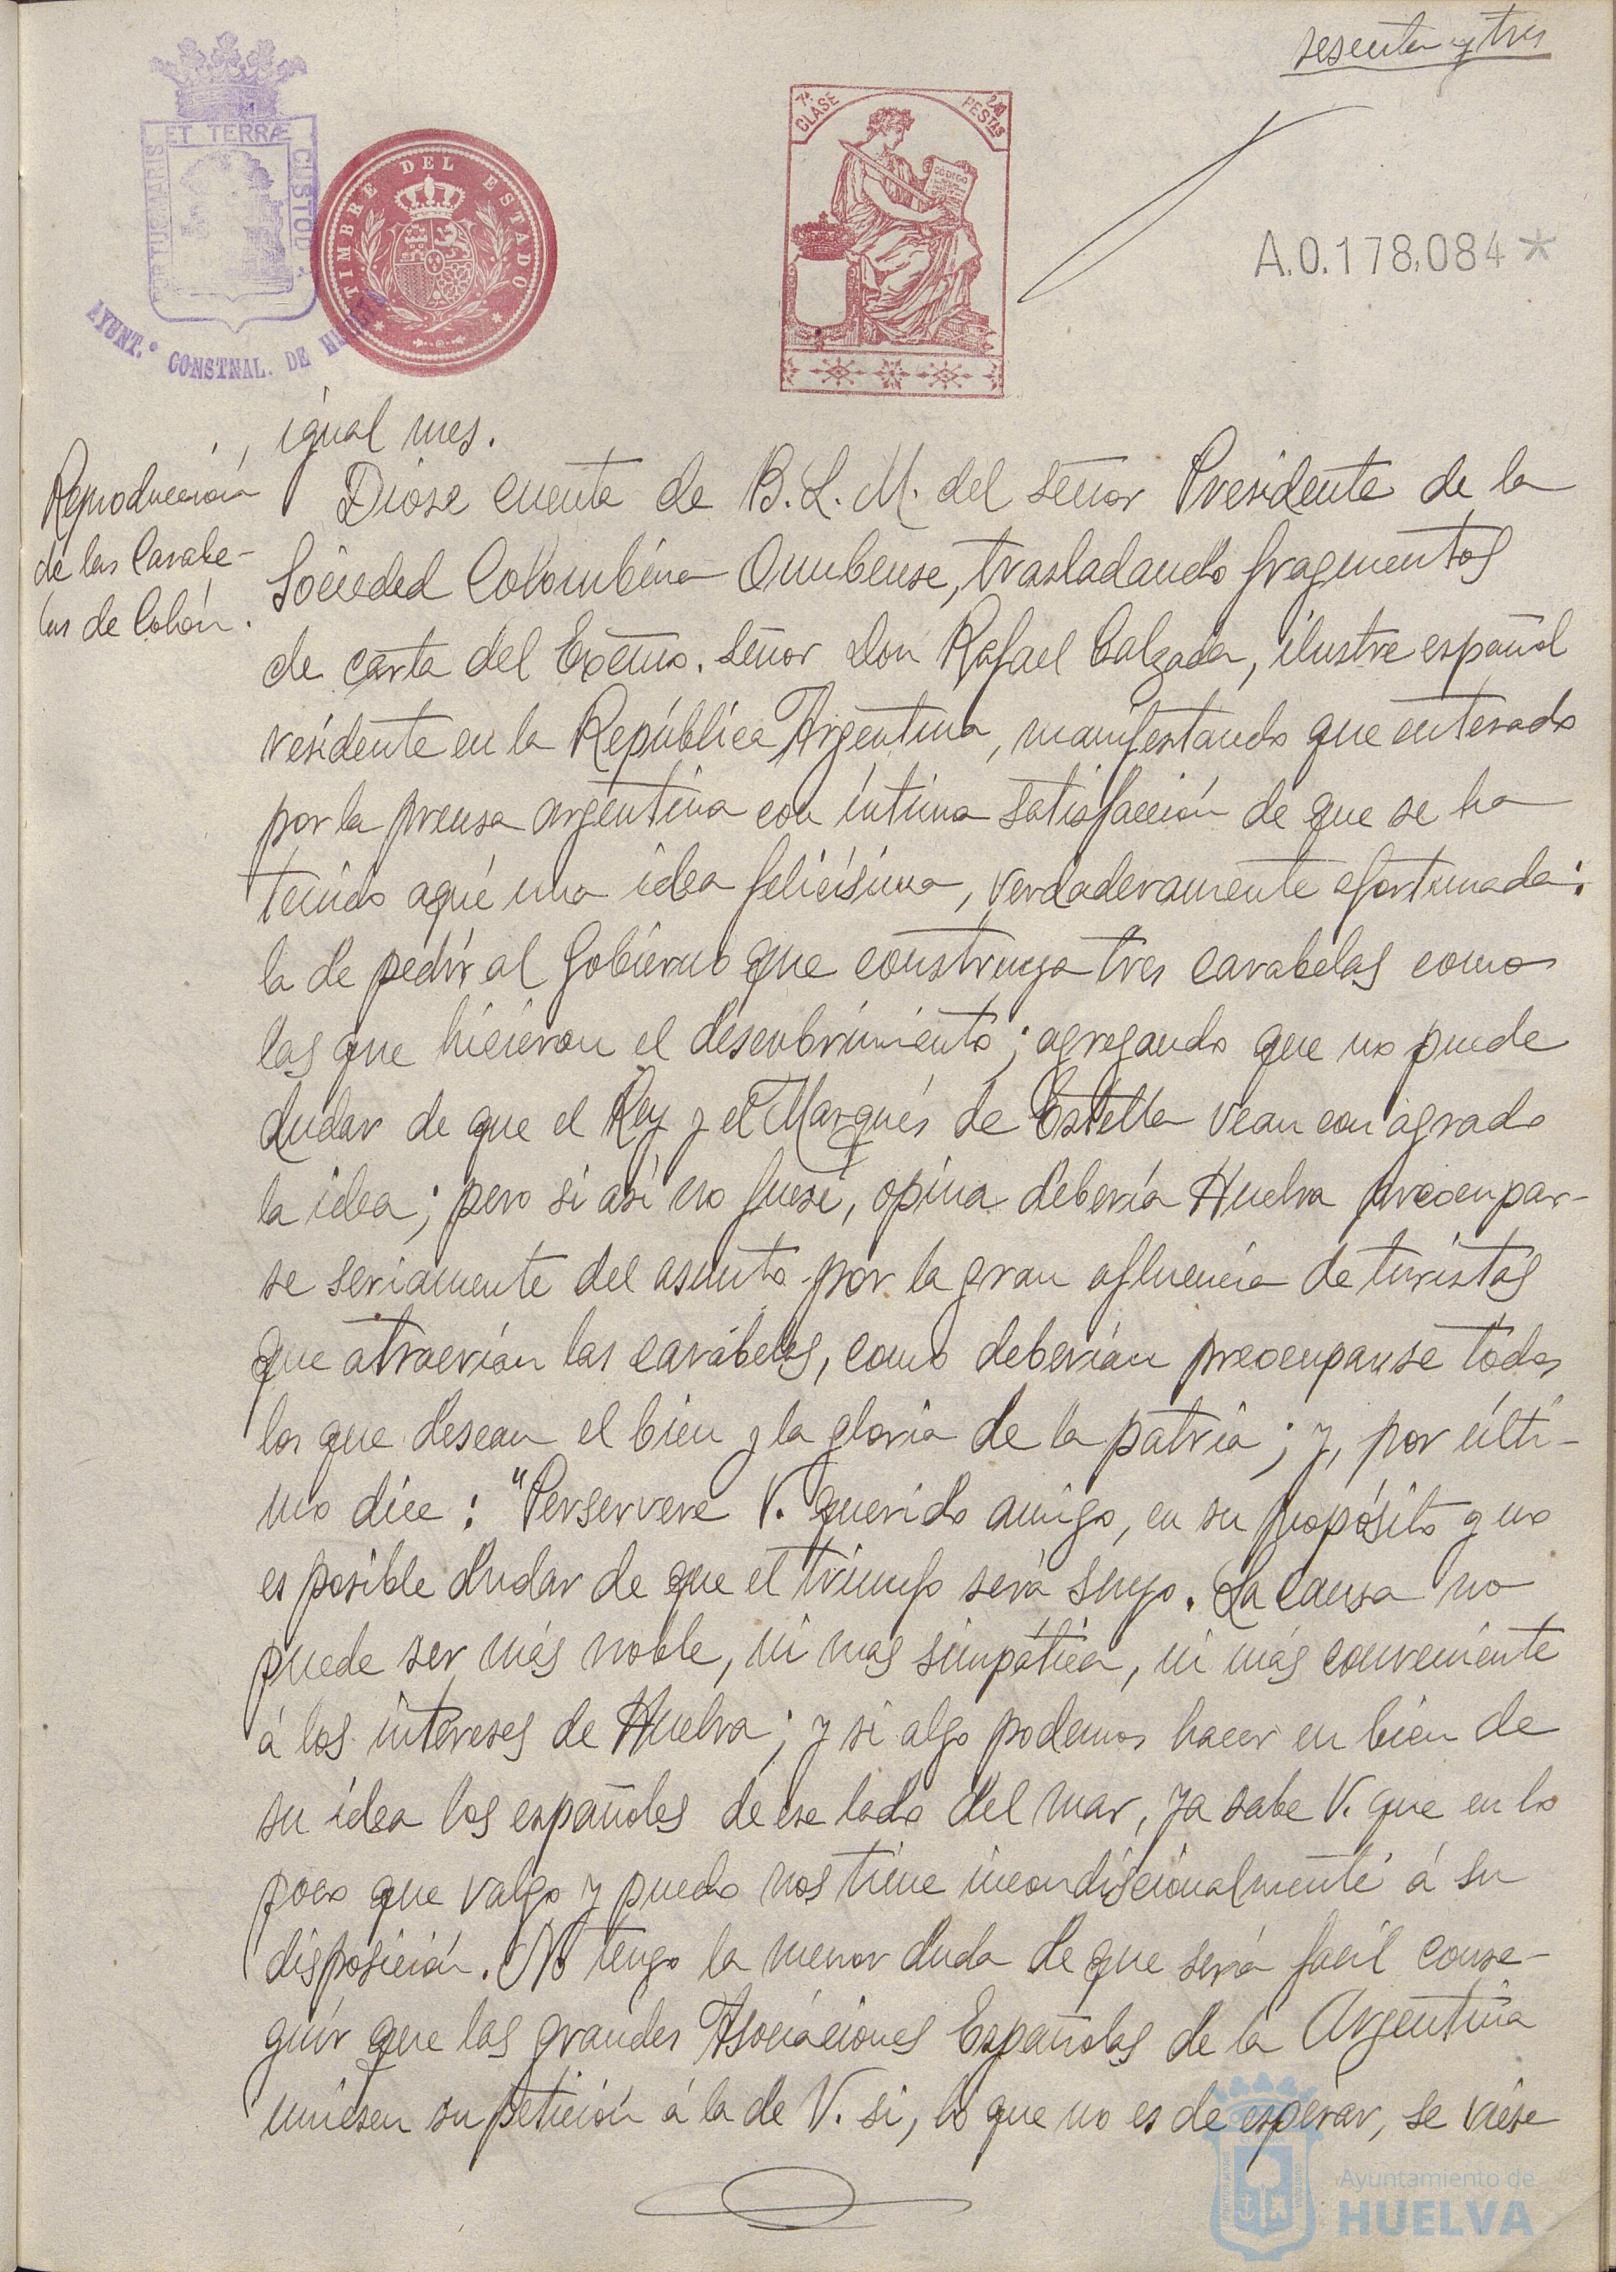 sesenta y tres
ET TERRÆ
CUSTOD
PORTUS MARIS
AYUNT.º CONSTNAL. DE
TIMBRE DEL ESTADO
7ª CLASE
PESTAS
CODIGO
A.0.178,084*
igual mes.
Reproducción
de las Carabe-
las de Colón.
Diose cuenta de B. L. M. del señor Presidente de la
Sociedad Colombina Onubense, trasladando fragmentos
de carta del Excmo. señor Don Rafael Calzada, ilustre español
residente en la República Argentina, manifestando que enterado
por la prensa argentina con íntima satisfacción de que se ha
tenido aquí una idea felicísima, verdaderamente afortunada:
la de pedir al Gobierno que construya tres carabelas como
las que hicieron el descubrimiento; agregando que no puede
dudar de que el Rey y el Marqués de Estella vean con agrado
la idea; pero si así no fuese, opina debería Huelva preocupar-
se seriamente del asunto por la gran afluencia de turistas
que atraerían las carabelas, como deberían preocuparse todos
los que desean el bien y la gloria de la patria; y, por últi-
mo dice: "Perservere V. querido amigo, en su propósito y no
es posible dudar de que el triunfo será suyo. La causa no
puede ser más noble, ni mas simpática, ni más conveniente
á los intereses de Huelva; y si algo podemos hacer en bien de
su idea los españoles de ese lado del mar, ya sabe V. que en lo
poco que valgo y puedo nos tiene incondicionalmente á su
disposición. No tengo la menor duda de que será facil conse-
guir que las grandes Asociaciones Españolas de la Argentina
uniesen su petición á la de V. si, lo que no es de esperar, se viese
Ayuntamiento de
HUELVA